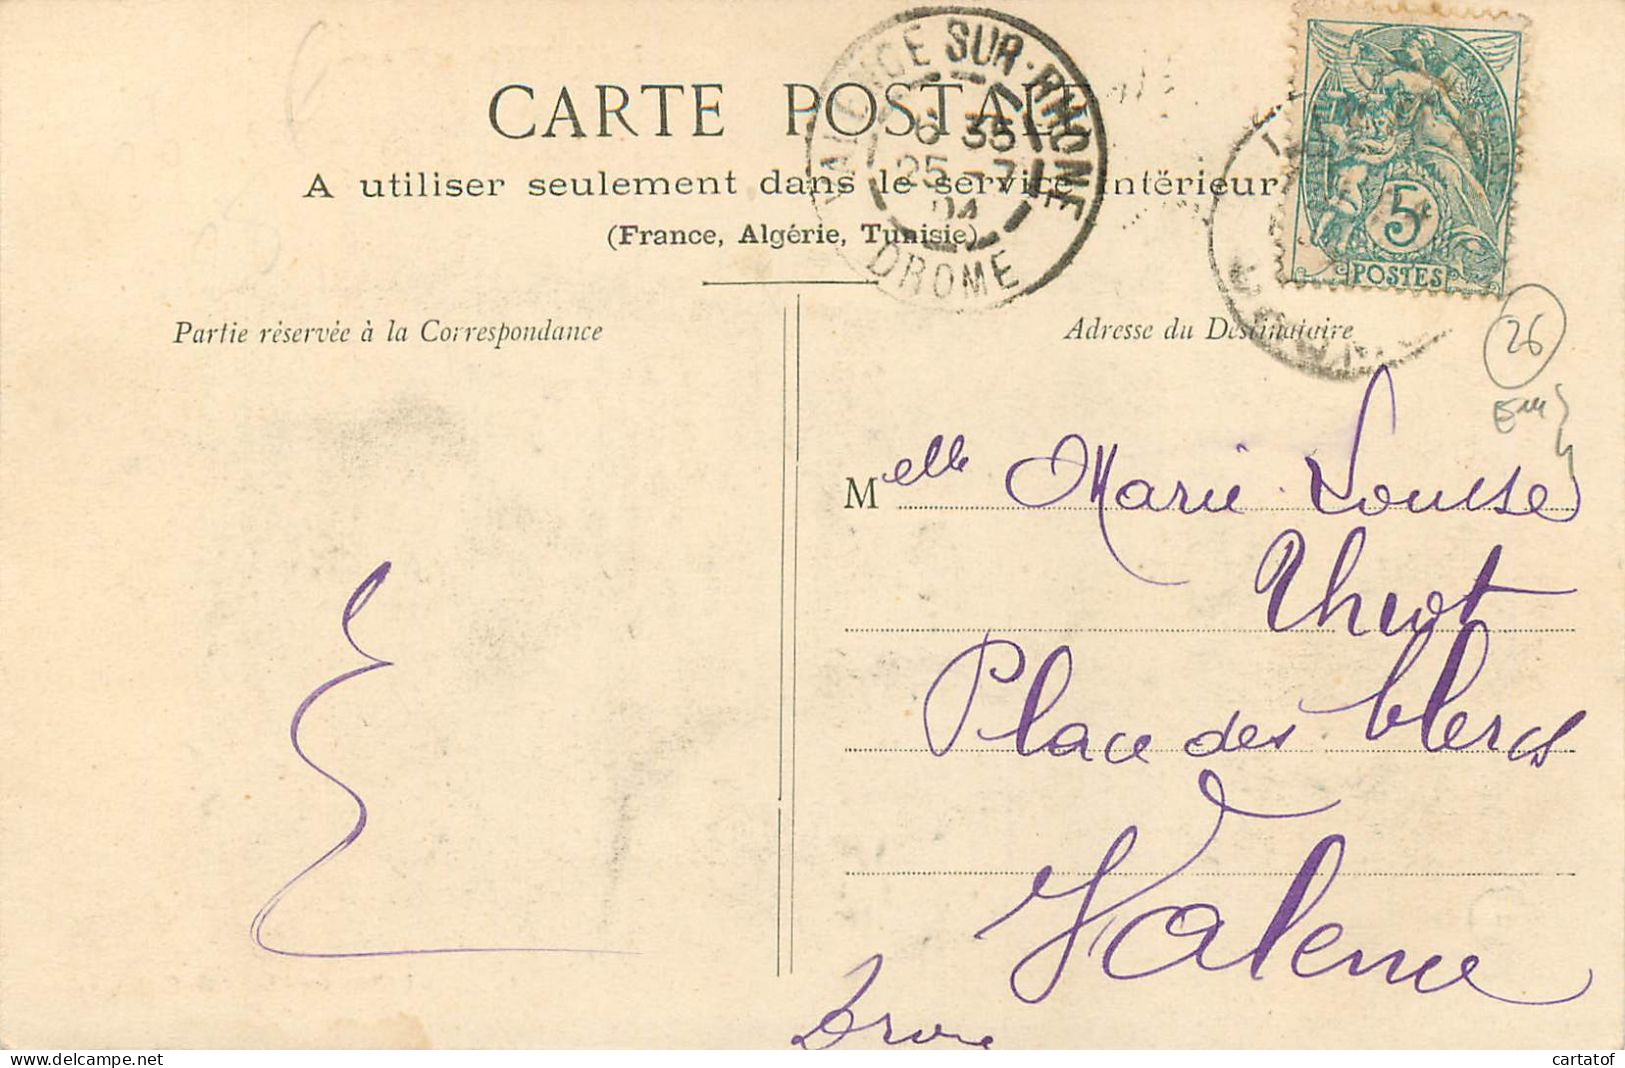 CARTE POSTALE
A utiliser seulement dans le service intérieur
(France, Algérie, Tunisie)
VALENCE SUR-RHONE
6 35
25 -7
04
DROME
5c
POSTES
Partie réservée à la Correspondance
Adresse du Destinataire
26
Melle Marie Louise
Place des Clercs
Valence
Drôme
delcampe.net
cartatof